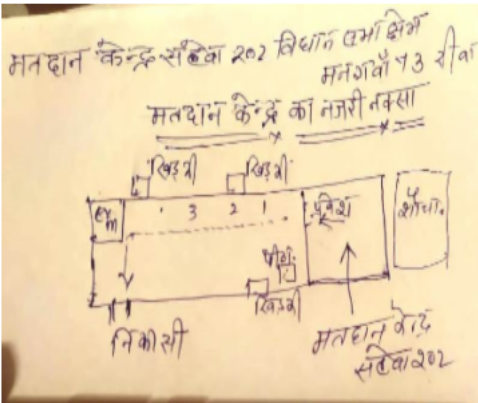 मतदान केन्द्र सठेवा २०२ विधान सभा क्षेत्र
मनगवाँ 73 रीवा
मतदान केन्द्र का नजरी नक्सा
खिड़की
खिड़की
EVM
3
2
1
प्रवेश
शौचा.
पीठा.
खिड़की
निकासी
मतदान केन्द्र
सठेवा २०२